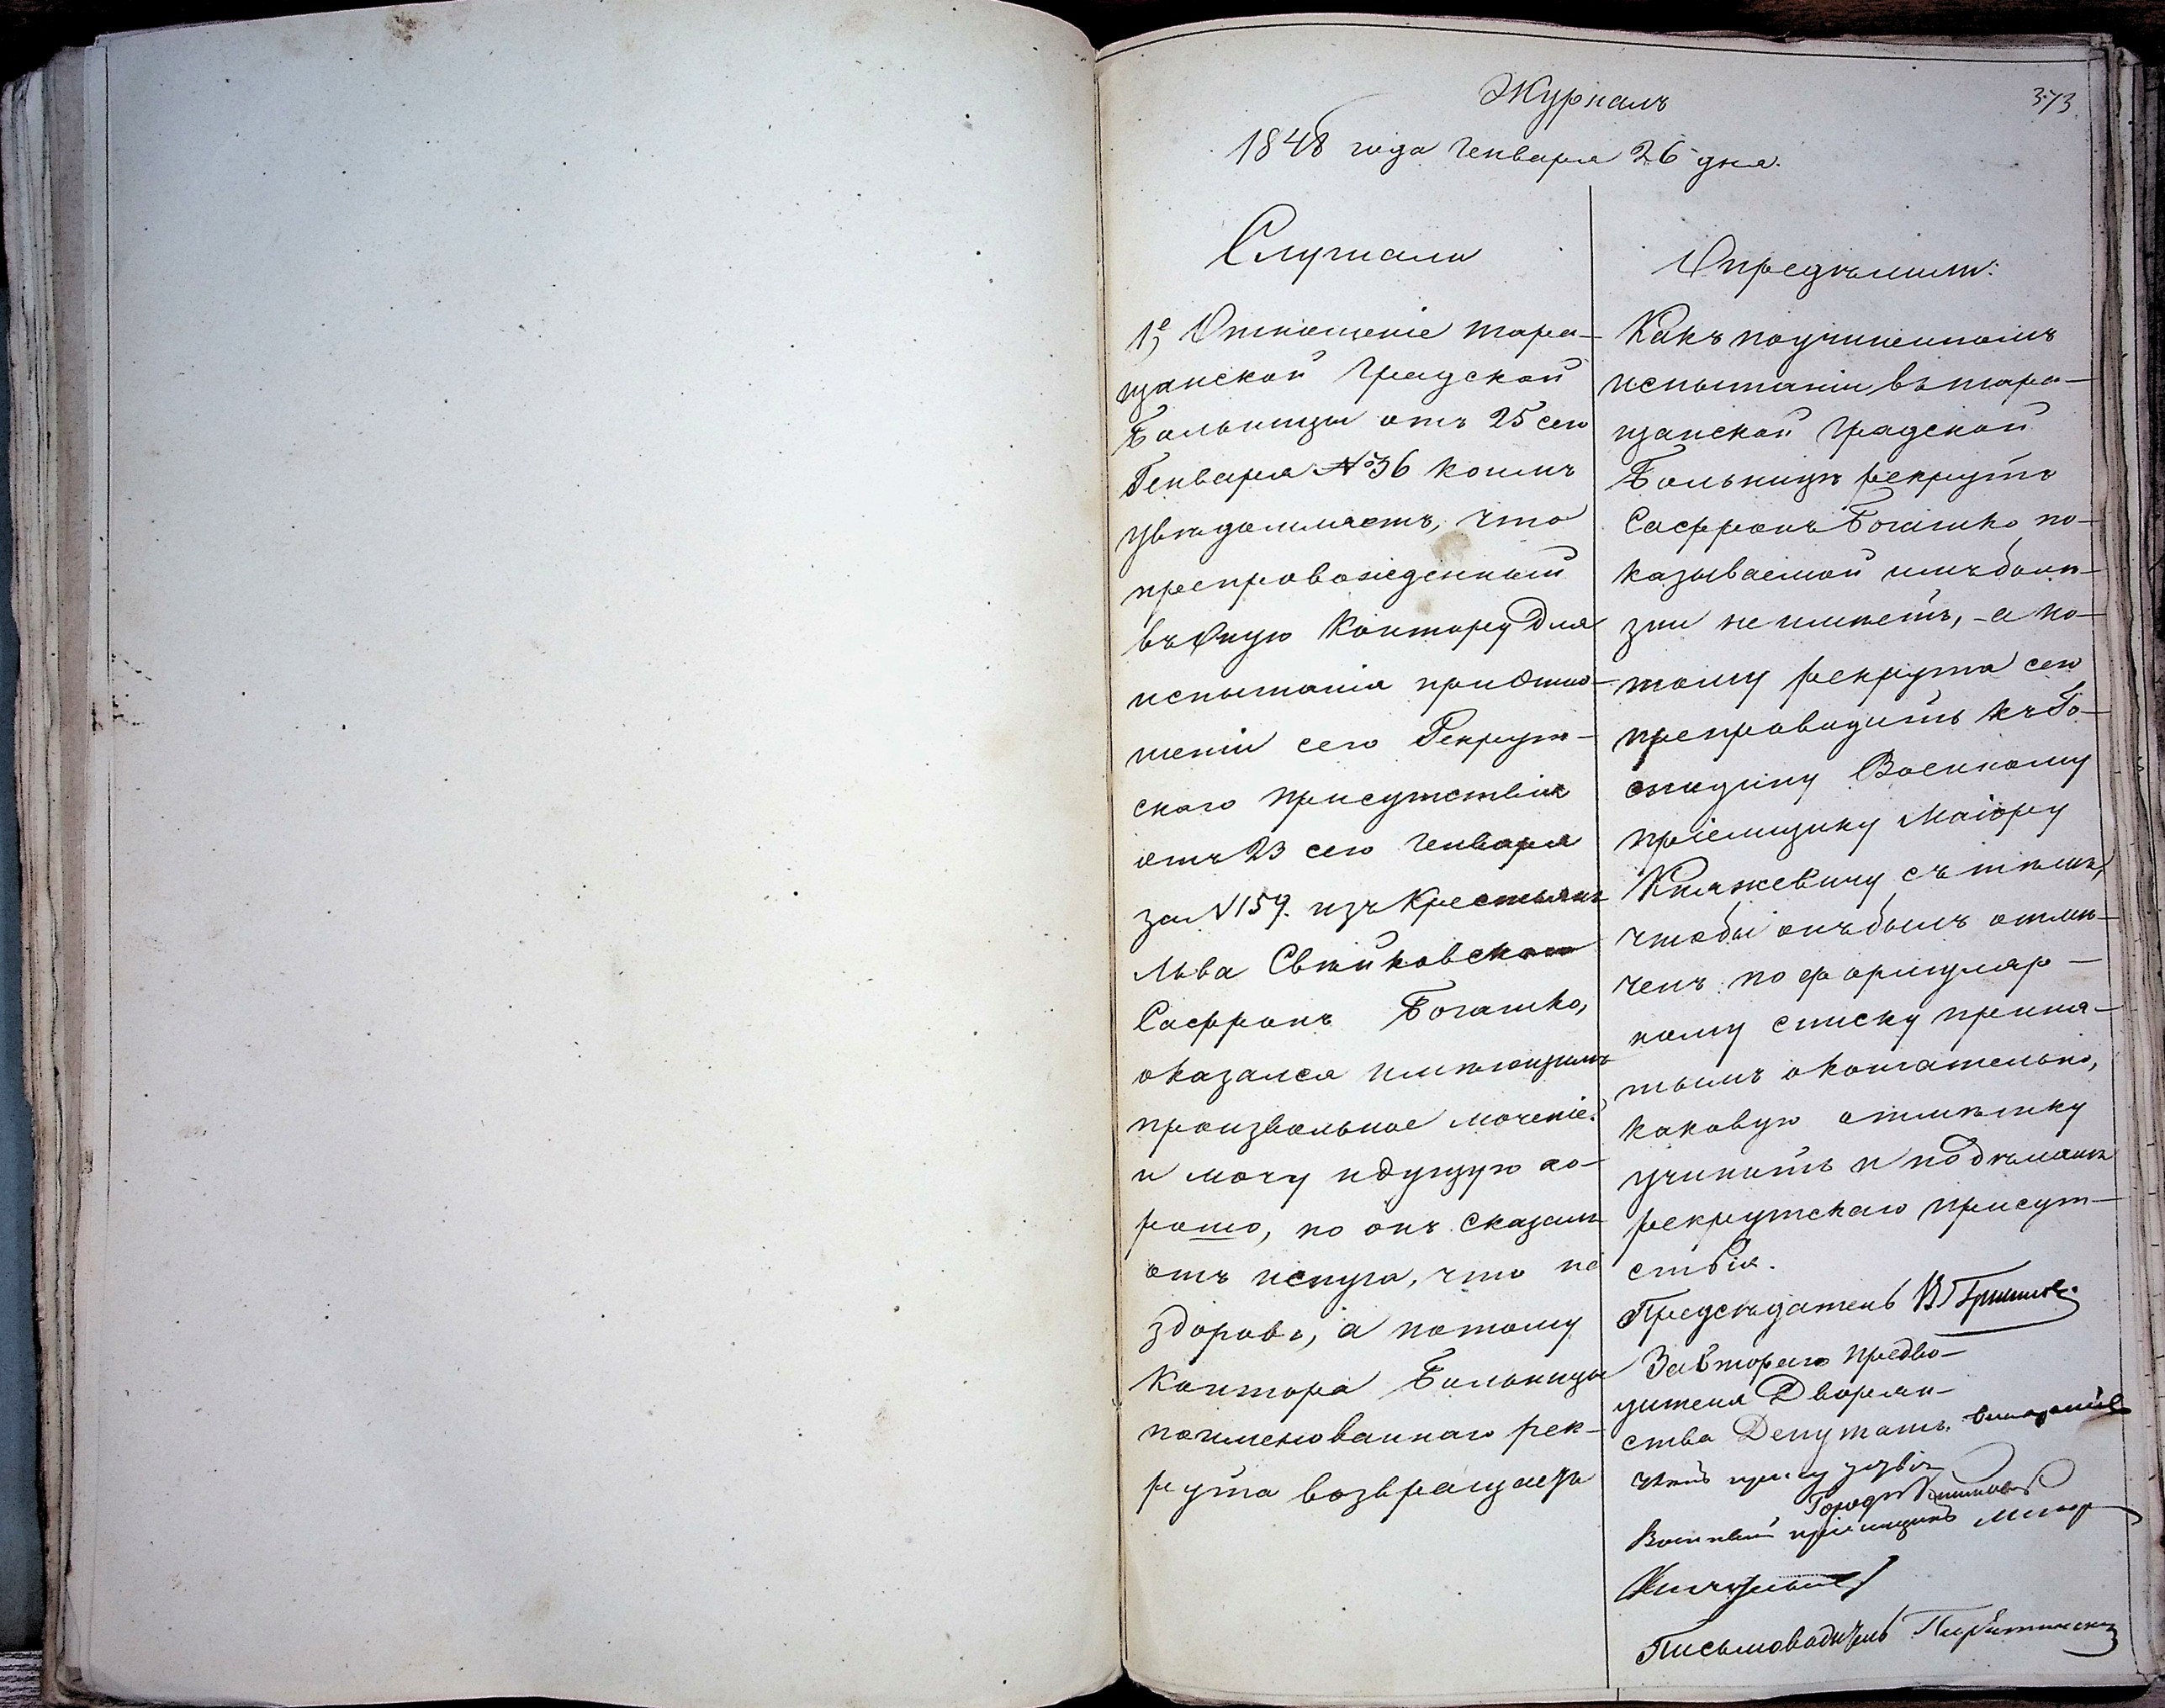 Журналъ
373.
1848 года Генваря 26 дня.
Слушали
1е, Отношеніе Тара-
щанской Градской
Больницы отъ 25 сего
Генваря № 36 коимъ
увѣдомляетъ, что
препровожденный
въ Оную Контору для
испытанія при Отно-
шеніи сего Рекрут-
скаго присутствія
отъ 23 сего Генваря
за N 159. изъ Крестьянъ
Льва Свѣйковскаго
Сафронъ Богашко,
оказался имѣющимъ
произвольное моченіе
и мочу идущую хо-
рошо, но онъ сказалъ
отъ испуга, что не
здоровъ, а потому
Контора Больницы
поименованнаго рек-
рута возвращаетъ
Опредѣлили:
Какъ по учиненномъ
испытаніи въ Тара-
щанской Градской
Больницѣ рекрутъ
Сафронъ Богашко по-
казываемой имъ болѣ-
зни не имѣетъ, - а по-
тому рекрута сего
препроводить къ Го-
сподину Военному
пріемщику Маіору
Княжевичу съ тѣмъ,
чтобы онъ былъ отмѣ-
ченъ по формуляр-
ному списку приня-
тымъ окончательно,
каковую отмѣтку
учинить и по дѣламъ
рекрутскаго присут-
ствія.
Предсѣдатель В
За втораго Предво-
дителя Дворян-
ства Депутатъ
Членъ присутствія
Город
Военный пріемщикъ Маіоръ
Письмоводитель